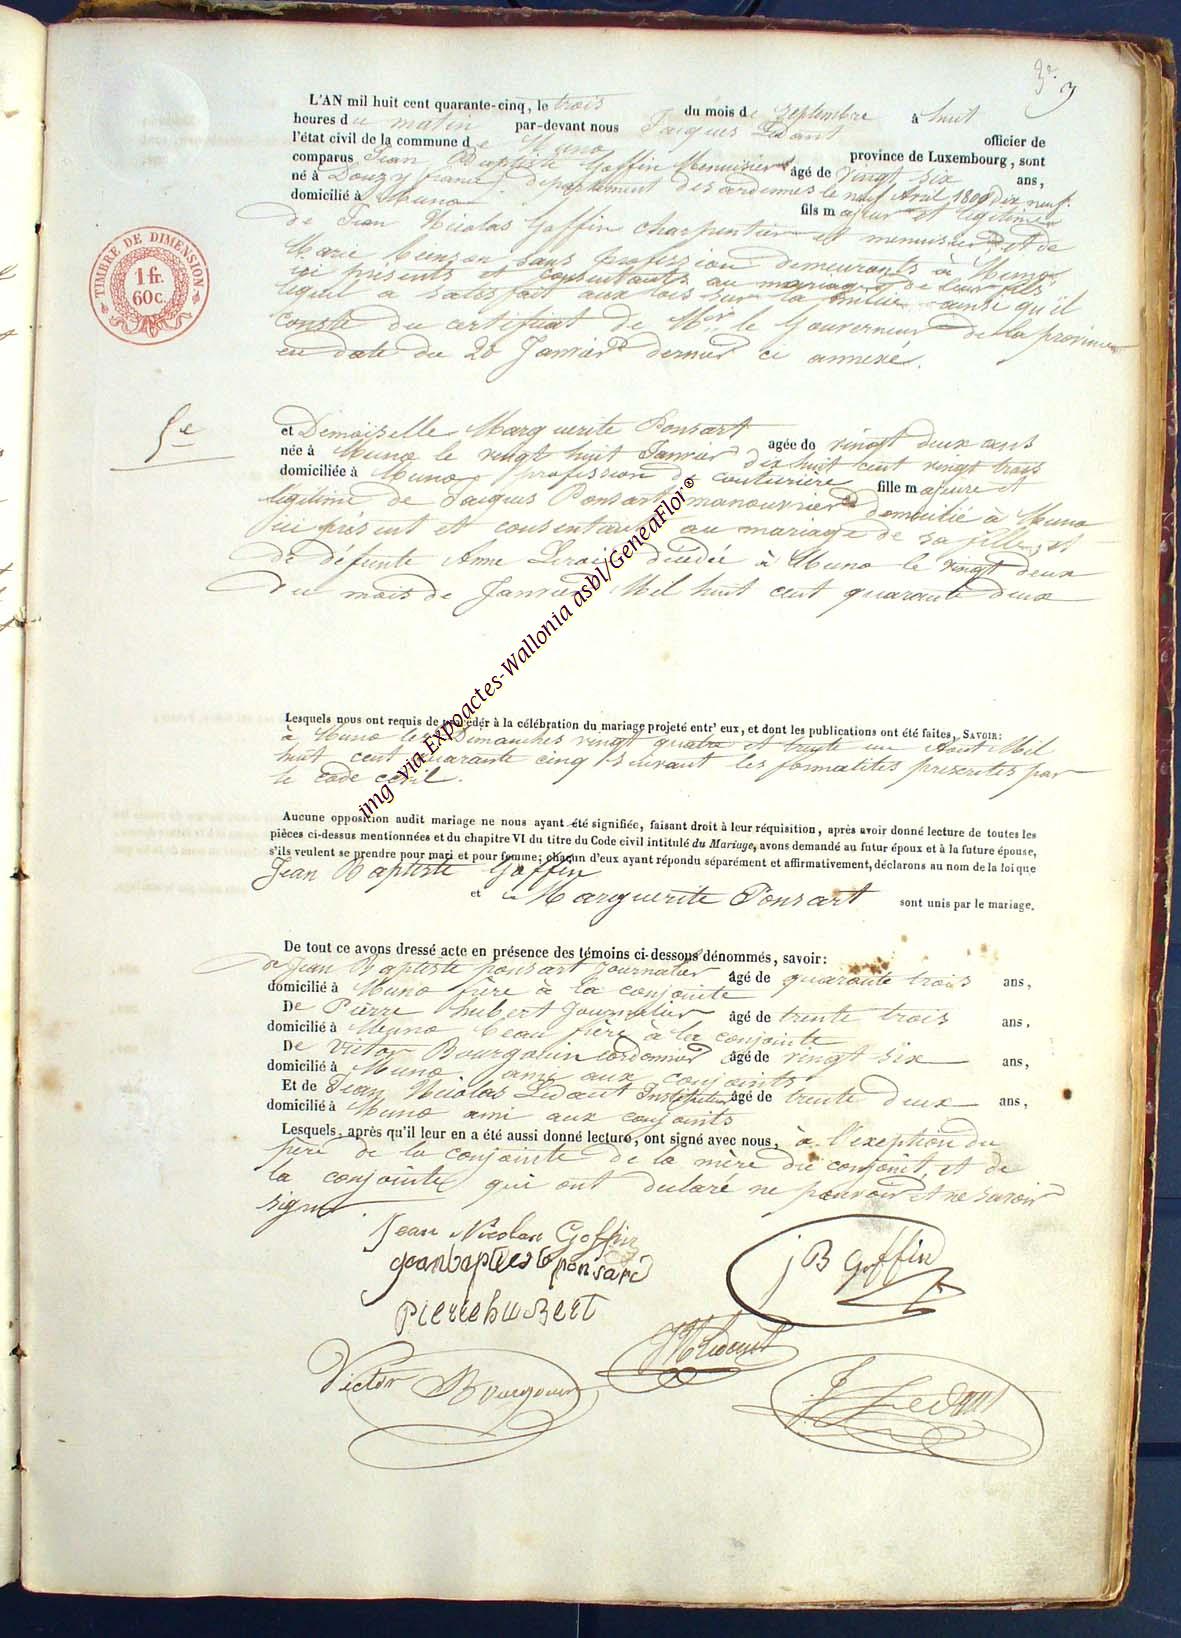 3e 9
L'AN mil huit cent quarante-cinq, le trois du mois de Septembre à huit
heures du matin par-devant nous Jacques Ledant officier de
l'état civil de la commune de Muno province de Luxembourg, sont
comparus Jean Baptiste Goffin Menuisier âgé de vingt six ans,
né à Douzy france, département des ardennes le neuf Avril 1800 dix neuf.
domicilié à Muno fils majeur et légitime
de Jean Nicolas Goffin charpentier et menuisier, et de
Marie sans profession demeurants à Muno
ici présents et consentants au mariage de leur fils
lequel a satisfait aux lois sur la milice ainsi qu'il
conste du certificat de Mr le Gouverneur de la province
en date du 20 Janvier dernier ci annexé.
TIMBRE DE DIMENSION
1 fr.
60 c.
5e
et Demoiselle Marguerite Ponsart agée de vingt deux ans
née à Muno le vingt huit Janvier dix huit cent vingt trois
domiciliée à Muno profession de couturière fille majeure et
légitime de Jacques Ponsart manouvrier domicilié à Muno
ici présent et consentant au mariage de sa fille, et
de défunte Anne décédée à Muno le vingt deux
du mois de Janvier Mil huit cent quarante deux
Lesquels nous ont requis de procéder à la célébration du mariage projeté entr' eux, et dont les publications ont été faites, SAVOIR:
à Muno les Dimanches vingt quatre et trente un Aout Mil
huit cent quarante cinq suivant les formalités prescrites par
le code civil.
Aucune opposition audit mariage ne nous ayant été signifiée, faisant droit à leur réquisition, après avoir donné lecture de toutes les
pièces ci-dessus mentionnées et du chapitre VI du titre du Code civil intitulé du Mariage, avons demandé au futur époux et à la future épouse,
s'ils veulent se prendre pour mari et pour femme; chacun d'eux ayant répondu séparément et affirmativement, déclarons au nom de la loi que
Jean Baptiste Goffin
et Marguerite Ponsart sont unis par le mariage.
De tout ce avons dressé acte en présence des témoins ci-dessous dénommés, savoir:
de Jean Baptiste ponsart journalier âgé de quarante trois ans,
domicilié à Muno frère à la conjointe
De Pierre hubert Journalier âgé de trente trois ans,
domicilié à Muno beau frère à la conjointe
De Victor Bourgouin cordonnier âgé de vingt six ans,
domicilié à Muno ami aux conjoints
Et de Jean Nicolas Ledant Instituteur âgé de trente deux ans,
domicilié à Muno ami aux conjoints
Lesquels, après qu'il leur en a été aussi donné lecture, ont signé avec nous, à l'exeption du
père de la conjointe de la mère du conjoint, et de
la conjointe qui ont déclaré ne pouvoir et ne savoir
signer.
Jean Nicolas Goffin
jeanbaptiste ponsard
J B Goffin
Pierre hubert
JN Ledant
Victor Bourgouin
J Ledant
img via Expoactes-Wallonia asbl/GeneaFlor©